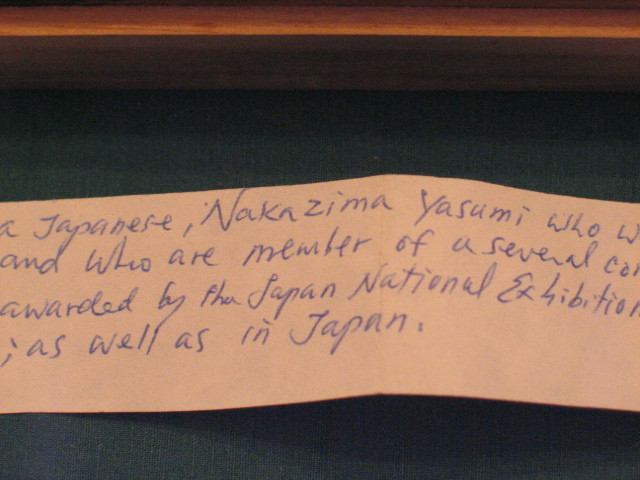 a Japanese, Nakazima Yasumi who
and who are member of a several
awarded by the Japan National Exhibition
; as well as in Japan.